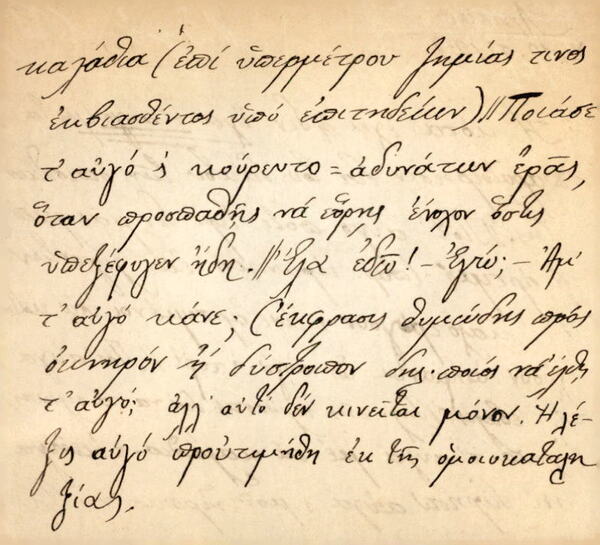 καλάθια (ἐπί ὑπερμέτρου ζημίας τινος
ἐκβιασθέντος ὑπό ἐπιτηδείων) // Ποιάσε
τ' αὐγό ς κούρεντο = ἀδυνάτων ἐρᾷς,
ὅταν προσπαθῇς νά εὕρῃς ἔνοχον ὅστις
ὑπεξέφυγεν ἤδη. // Ἔλα ἐδῶ! – Ἐγώ; – Ἀμ'
τ' αὐγό κάνε; (ἔκφρασις θυμώδης πρός
ὀκνηρόν ἤ δύστροπον δηλ. ποιός νά ἔλθῃ,
τ' αὐγό; ἀλλ' αὐτό δέν κινεῖται μόνον. Ἡ λέ-
ξις αὐγό προὐτιμήθη ἐκ τῆς ὁμοιοκαταλη
ξίας.